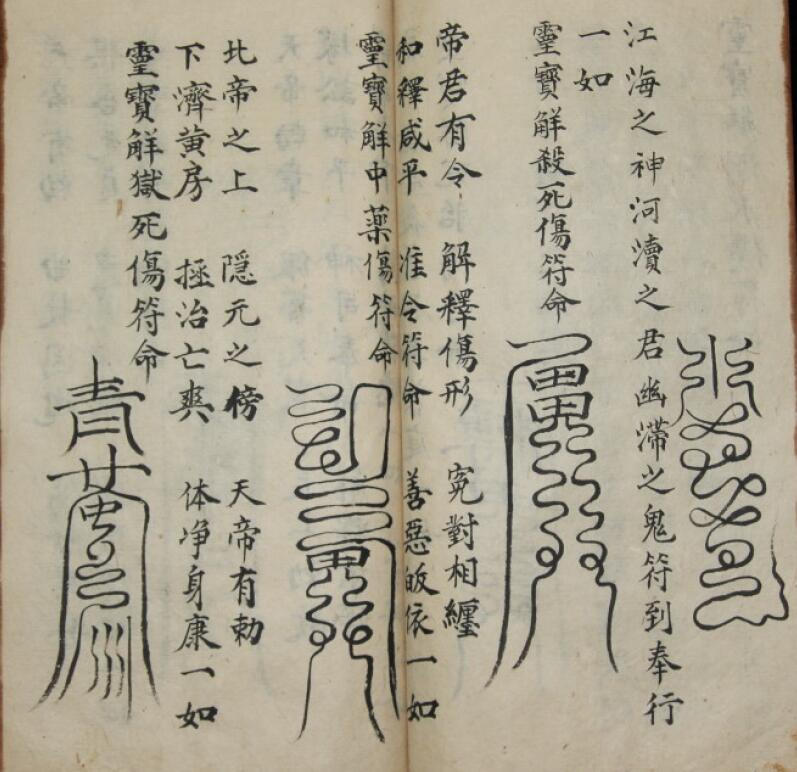 江海之神河瀆之君幽滯之鬼符到奉行
一如
靈寶解殺死傷符命
帝君有令 解釋傷形 寃對相纏
和釋咸平 准令符命 善惡皈依一如
靈寶解中藥傷符命
北帝之上 隱元之傍 天帝有勅
下濟黄房 拯治亡爽 体净身康一如
靈寶解獄死傷符命